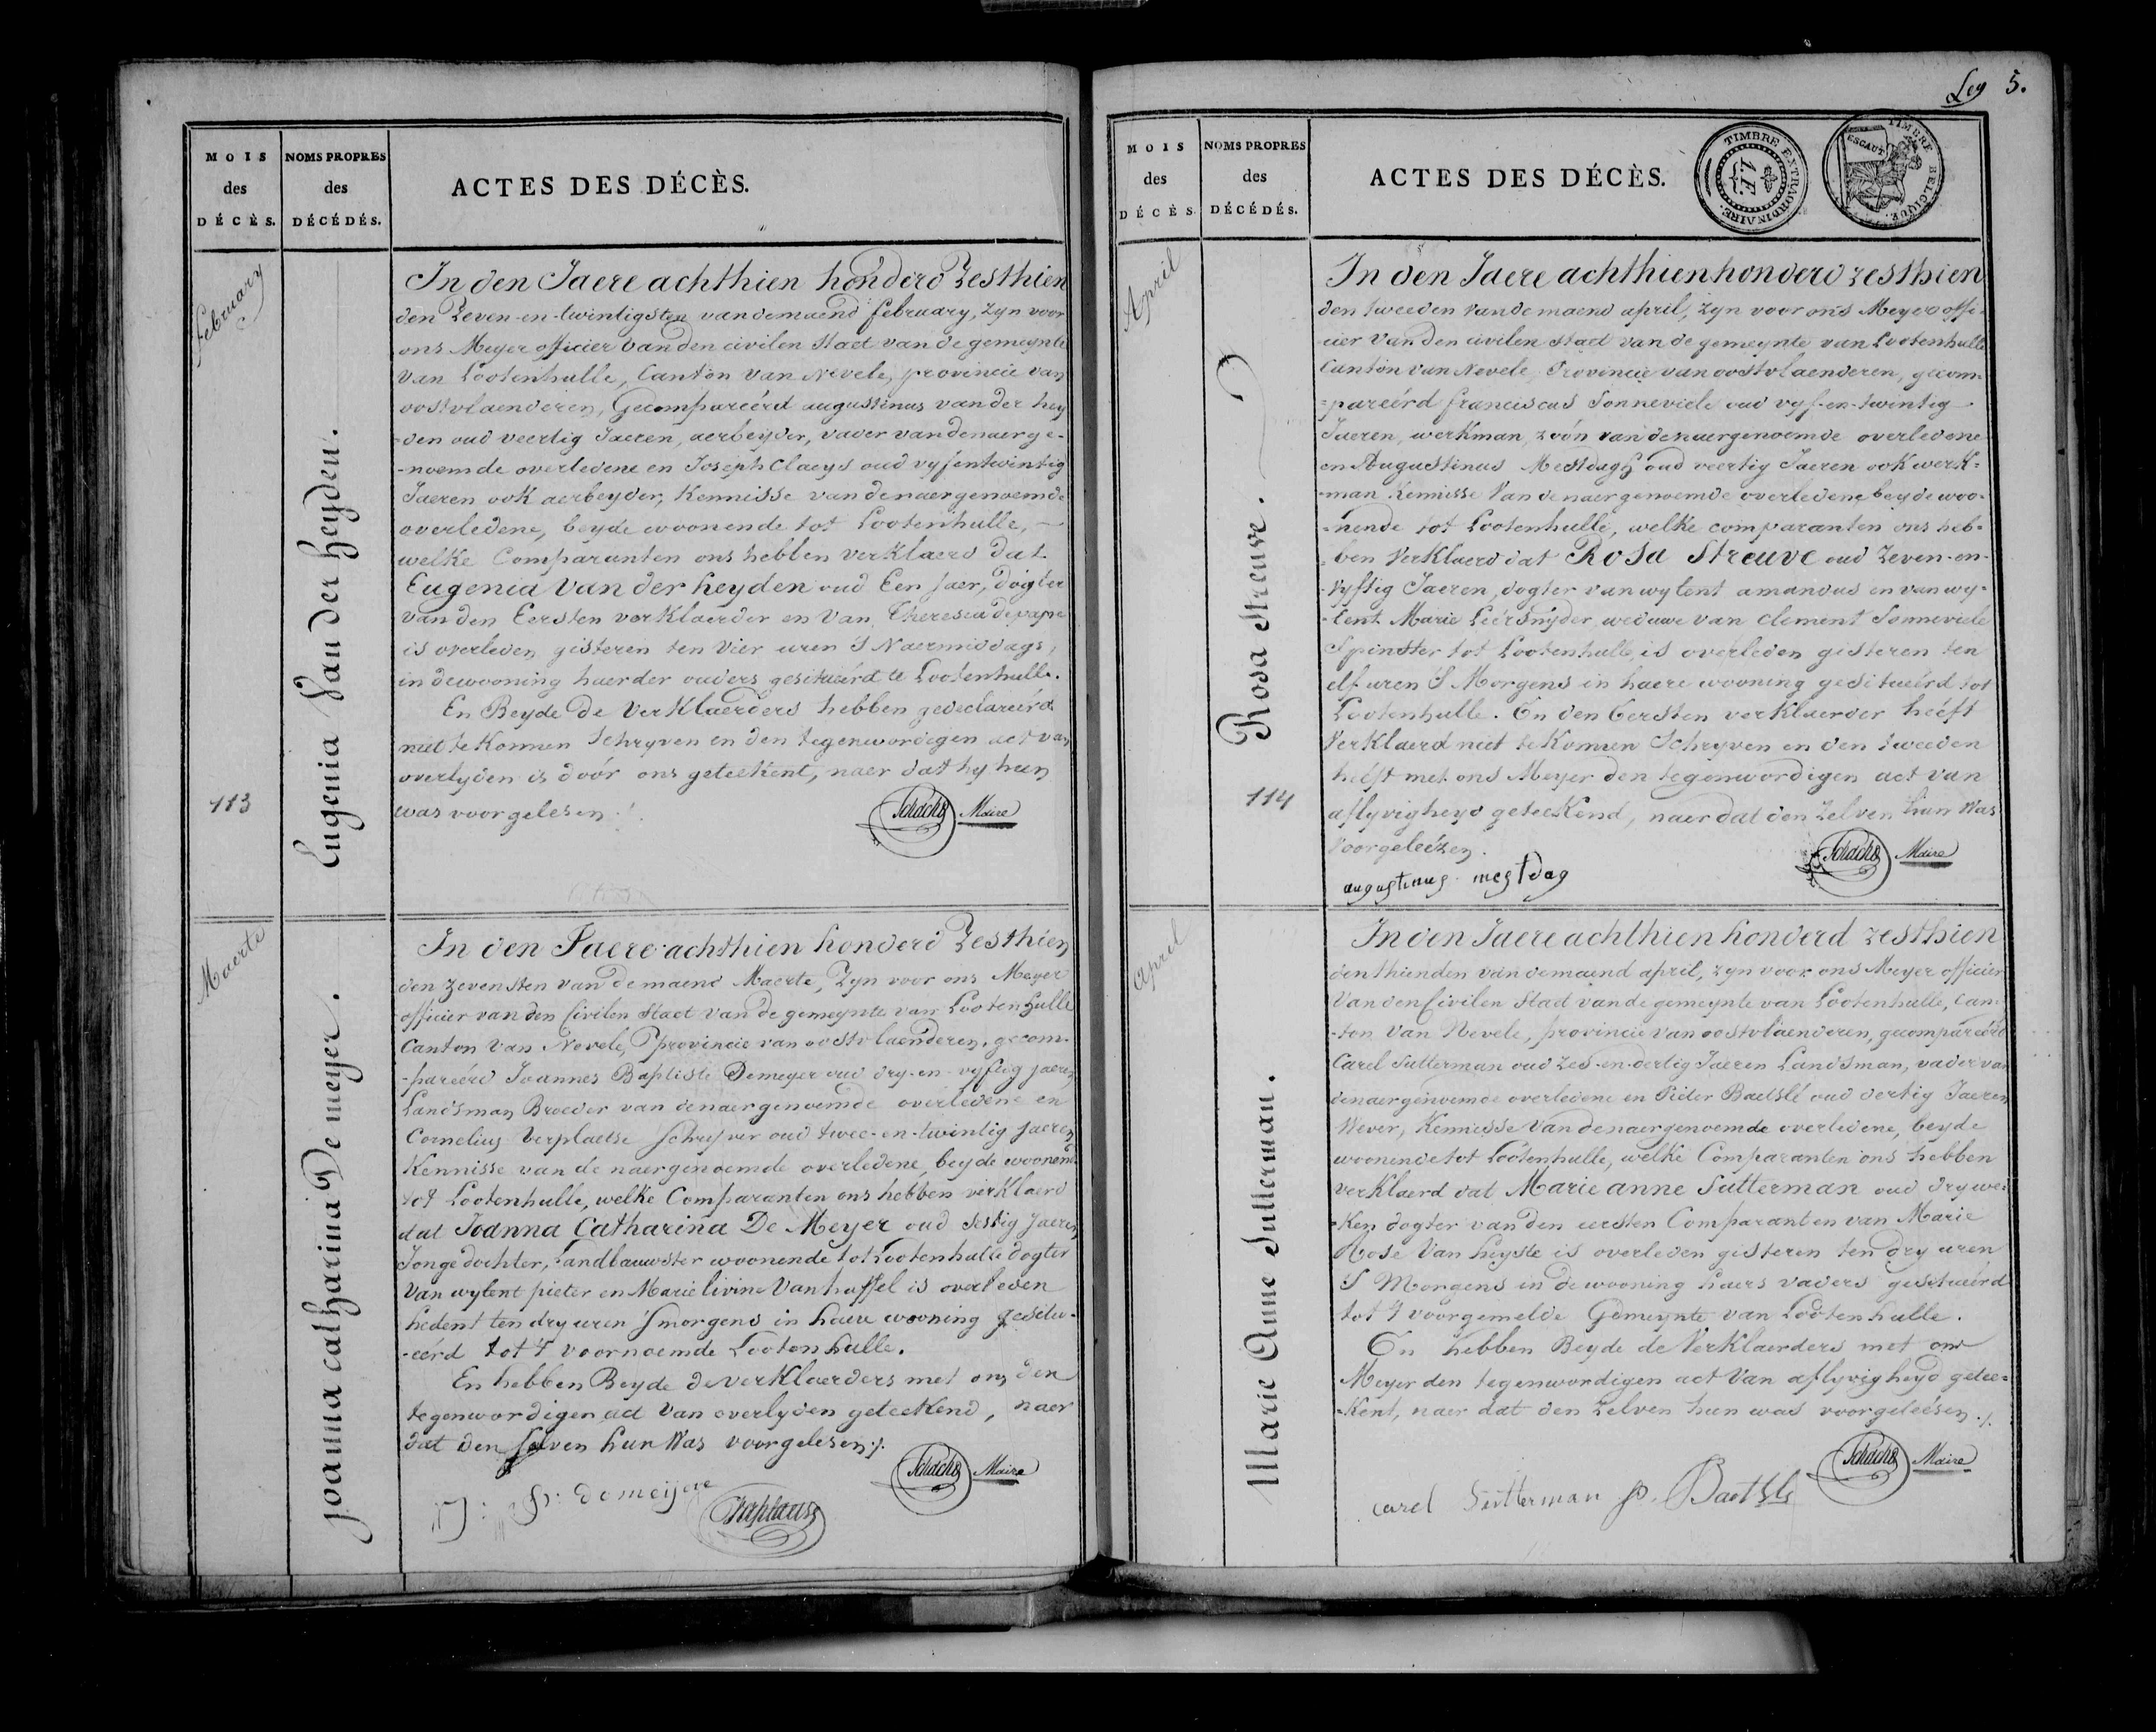 MOIS
des
DÉCÈS.
NOMS PROPRES
des
DÉCÉDÉS.
ACTES DES DÉCÈS.
February
113
Eugenia Van der heyden.
In den Jaere achthien honderd Zesthien
den Zeven-en-twintigsten vandemaend february, zyn voor
ons Meyer officier van den civilen staet van de gemeynte
van Lootenhulle, Canton van Nevele, provincie van
oostvlaenderen, Gecompareérd augustinus van der hey
-den oud veertig Jaeren, aerbeyder, vader van denaerge-
-noemde overledene en Joseph Claeys oud vyfentwintig
Jaeren ook aerbeyder, Kennisse van denaergenoemde
overledene, beyde woonende tot Lootenhulle,
welke Comparanten ons hebben verklaerd dat
Eugenia Van der heyden oud Een jaer, dogter
van den Eersten verklaerder en van Theresia depape
is overleden gisteren ten vier uren S Naermiddags,
in dewooning haerder ouders gesitueérd te Lootenhulle.
En Beyde de Verklaerders hebben gedeclareérd
niet te konnen Schryven en den tegenwordigen act van
overlyden is doór ons geteekent, naer dat hy hun
was voorgelesen.
Schacht Maire
Maerte
joanna catharina De meyer.
In den Jaere achthien honderd Zesthien
den zevensten van demaend Maerte, Zyn voor ons Meyer
officier van den Civilen Staet van de gemeynte van Lootenhulle
Canton Van Nevele, Provincie van oostvlaenderen, gecom-
-pareérd Joannes Baptiste Demeyer oud dry-en-vyftig jaeren
Landsman Broeder van denaergenoemde overledene en
Cornelius Verplaetse Schryver oud twee-en-twintig jaeren
Kennisse van de naergenoemde overledene, beyde woonende
tot Lootenhulle, welke Comparanten ons hebben verklaerd
dat Joanna Catharina De Meyer oud sestig jaeren
Jonge dochter, Landbauwster woonende tot Lootenhulle dogter
van wylent pieter en Marie livine Vanhuffel is overleden
hedent ten dry uren Smorgens in haere wooning gesitu-
-eérd tot t voornoemde Lootenhulle.
En hebben Beyde de verklaerders met ons den
tegenwordigen act van overlyden geteekend, naer
dat den selven hun was voorgelesen.
J: B: demeijere
Schacht Maire
Leg 5.
MOIS
des
DÉCÈS
NOMS PROPRES
des
DÉCÉDÉS.
ACTES DES DÉCÈS.
TIMBRE EXTRAORDINAIRE.
TIMBRE BELGIQUE.
ESCAUT
April
114
Rosa Streuve.
In den Jaere achthien honderd zesthien
den tweeden vandemaend april, zyn voor ons Meyer offi-
cier van den civilen staet van de gemeynte van Lootenhulle
Canton van Nevele, Provincie van oostvlaenderen, gecom-
-pareérd franciscus Sonneviele oud vyf-en-twintig
Jaeren, werkman, zoón van denaergenoemde overledene
en Augustinus Mestdagh oud veertig Jaeren ook werk-
-man Kennisse van denaergenoemde overledene beyde woo-
-nende tot Lootenhulle, welke comparanten ons heb-
-ben verklaerd dat Rosa Streuve oud Zeven-en-
vyftig Jaeren, dogter van wylent amandus en van wy-
-lent Marie Léérsnyder, weduwe van Clement Sonneviele
Spinster tot Lootenhulle, is overleden gisteren ten
elf uren S Morgens in haere wooning gesitueérd tot
Lootenhulle. En den Eersten verklaerder heéft
verklaerd niet te konnen Schryven en den tweeden
heéft met ons Meyer den tegenwordigen act van
aflyvigheyd geteekend, naer dat den zelven hun was
voorgeleézen.
augustinus mestdag
Schacht Maire
april
Marie Anne Sutterman.
In den Jaere achthien honderd zesthien
den thienden van demaend april, zyn voor ons Meyer officier
Van den Civilen Staet van de gemeynte van Lootenhulle, Can-
-ton van Nevele, provincie van oostvlaenderen, gecompareérd
Carel Sutterman oud zes-en-dertig Jaeren Landsman, vader van
denaergenoemde overledene en Pieter Baetslé oud dertig Jaeren
Wever, Kennisse van denaergenoemde overledene, beyde
woonende tot Lootenhulle, welke Comparanten ons hebben
verklaerd dat Marie anne Sutterman oud dry we-
-ken dogter van den eersten Comparant en van Marie
Rose Van heyste is overleden gisteren ten dry uren
S Morgens in de wooning haers vaders gesitueérd
tot t voorgemelde Gemeynte van Lootenhulle.
En hebben Beyde de Verklaerders met ons
Meyer den tegenwordigen act van aflyvigheyd getee-
-kent, naer dat den zelven hun was voorgeleésen.
carel Sutterman P. Baetsle
Schacht Maire